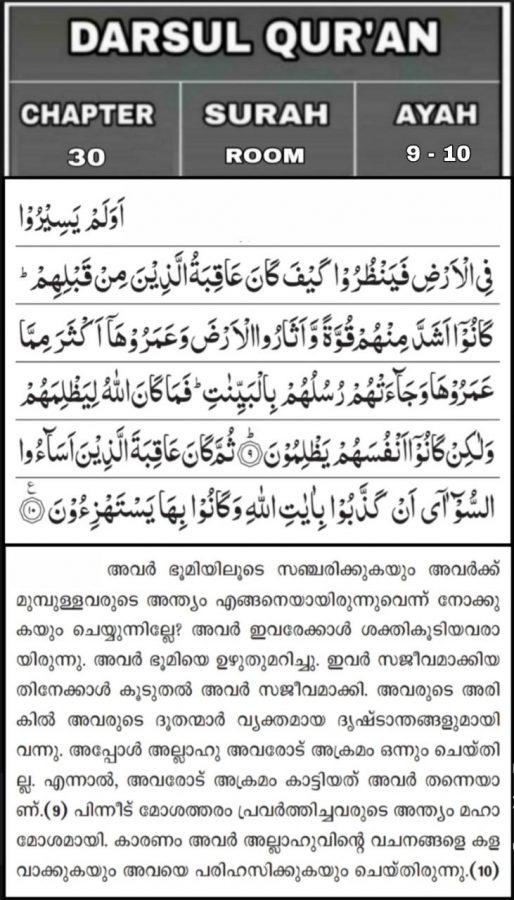 DARSUL QUR'AN
CHAPTER
30
SURAH
ROOM
AYAH
9 - 10
اَوَلَمْ يَسِيْرُوْا
فِى الْاَرْضِ فَيَنْظُرُوْا كَيْفَ كَانَ عَاقِبَةُ الَّذِيْنَ مِنْ قَبْلِهِمْ ؕ
كَانُوْۤا اَشَدَّ مِنْهُمْ قُوَّةً وَّاَثَارُوا الْاَرْضَ وَعَمَرُوْهَاۤ اَكْثَرَ مِمَّا
عَمَرُوْهَا وَجَآءَتْهُمْ رُسُلُهُمْ بِالْبَيِّنٰتِ ؕ فَمَا كَانَ اللّٰهُ لِيَظْلِمَهُمْ
وَلٰكِنْ كَانُوْۤا اَنْفُسَهُمْ يَظْلِمُوْنَ ؕ ﴿٩﴾ ثُمَّ كَانَ عَاقِبَةَ الَّذِيْنَ اَسَآءُوا
السُّوْٓاٰۤى اَنْ كَذَّبُوْا بِاٰيٰتِ اللّٰهِ وَكَانُوْا بِهَا يَسْتَهْزِءُوْنَ ﴿١٠﴾ ع
അവർ ഭൂമിയിലൂടെ സഞ്ചരിക്കുകയും അവർക്ക്
മുമ്പുള്ളവരുടെ അന്ത്യം എങ്ങനെയായിരുന്നുവെന്ന് നോക്കു
കയും ചെയ്യുന്നില്ലേ? അവർ ഇവരേക്കാൾ ശക്തികൂടിയവരാ
യിരുന്നു. അവർ ഭൂമിയെ ഉഴുതുമറിച്ചു. ഇവർ സജീവമാക്കിയ
തിനേക്കാൾ കൂടുതൽ അവർ സജീവമാക്കി. അവരുടെ അരി
കിൽ അവരുടെ ദൂതന്മാർ വ്യക്തമായ ദൃഷ്ടാന്തങ്ങളുമായി
വന്നു. അപ്പോൾ അല്ലാഹു അവരോട് അക്രമം ഒന്നും ചെയ്തി
ല്ല. എന്നാൽ, അവരോട് അക്രമം കാട്ടിയത് അവർ തന്നെയാ
ണ്.(9) പിന്നീട് മോശത്തരം പ്രവർത്തിച്ചവരുടെ അന്ത്യം മഹാ
മോശമായി. കാരണം അവർ അല്ലാഹുവിന്റെ വചനങ്ങളെ കള
വാക്കുകയും അവയെ പരിഹസിക്കുകയും ചെയ്തിരുന്നു.(10)